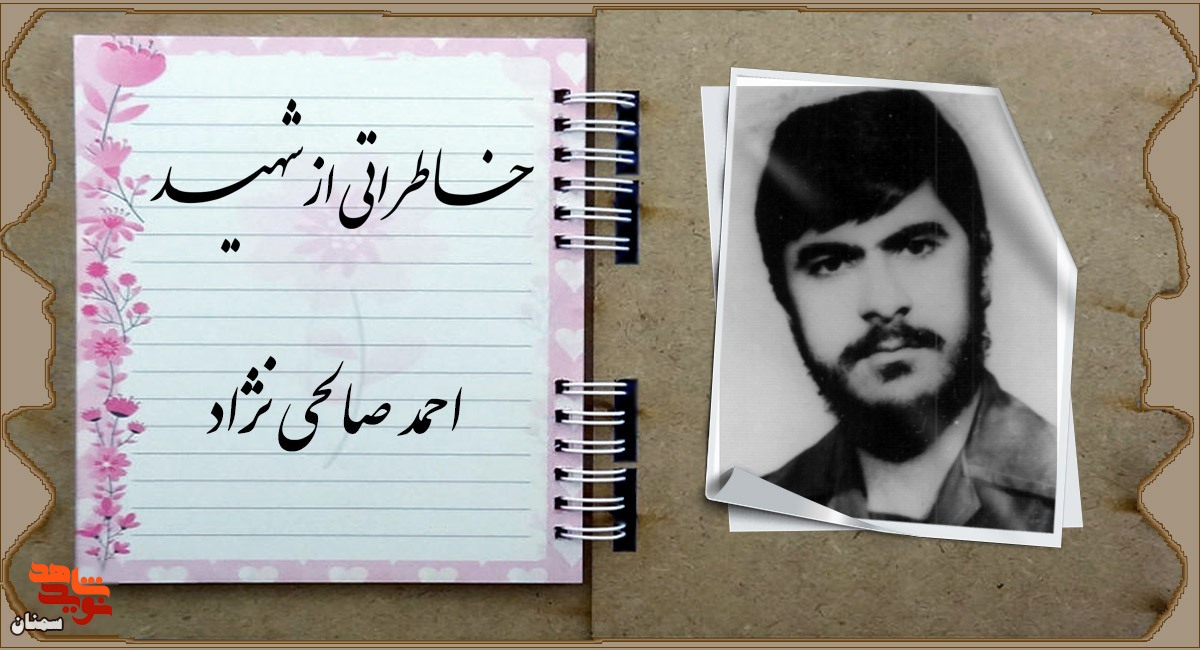 خاطراتی از شهید
احمد صالحی نژاد
نوید شاهد
سمنان